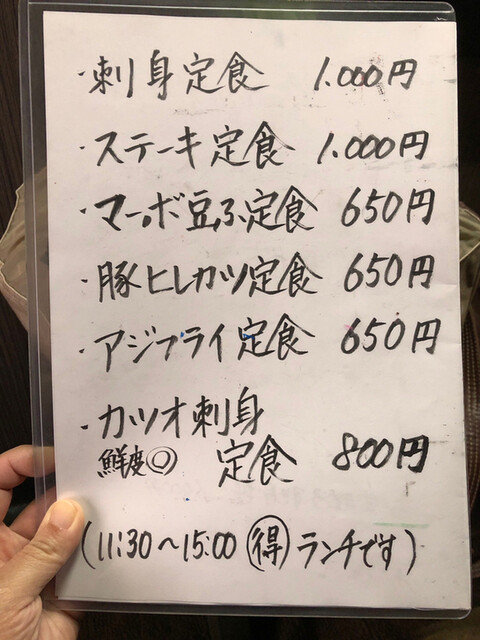 ・刺身定食 1.000円
・ステーキ定食 1.000円
・マーボ豆ふ定食 650円
・豚ヒレカツ定食 650円
・アジフライ定食 650円
・カツオ刺身
鮮度◎ 定食 800円
(11:30〜15:00 ㊝ランチです)